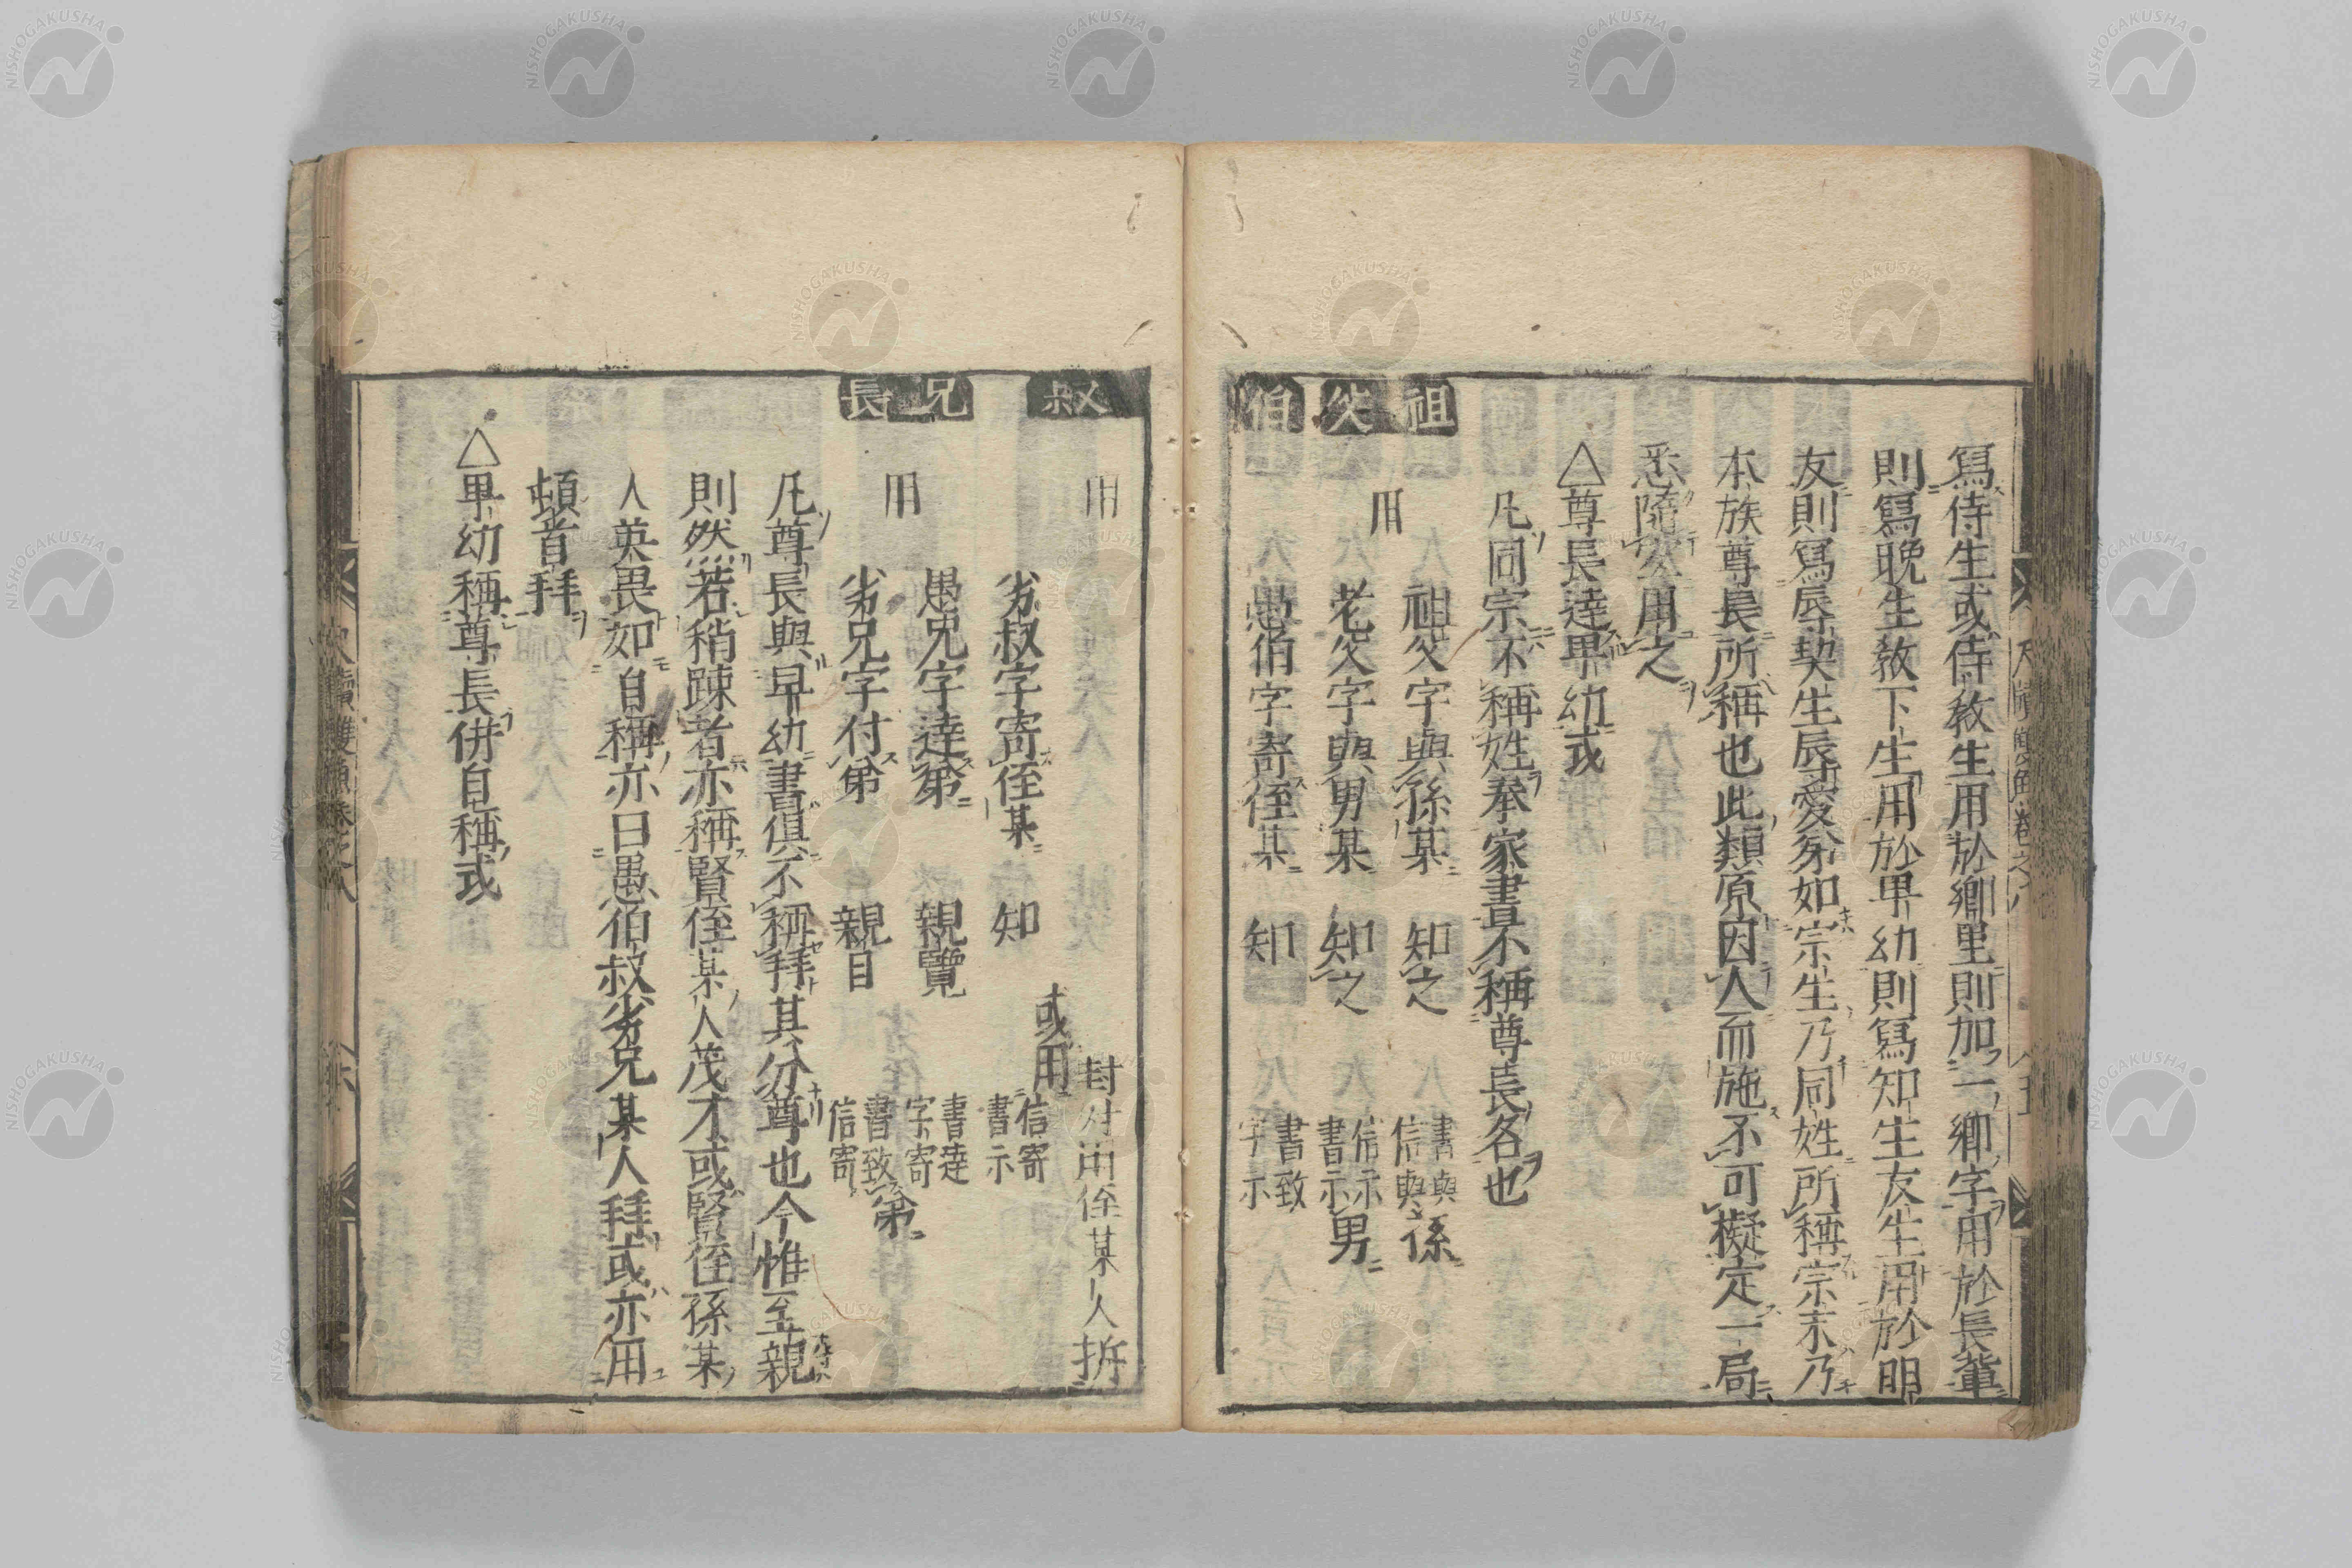 寫侍生或侍教生用於鄉里則加一鄉字用於長輩
則寫晚生教下生用於卑幼則寫知生友生用於明
友則寫辱契生辱愛弟如宗生乃同姓所稱宗末乃
本族尊長所稱也此類原因人而施不可擬定一局
悉隨宐用之
△尊長達卑幼或
凡同宗不稱姓奉家書不稱尊長名也
祖 祖父字與孫某 知之 書與 信與 孫
父 用 老父字與男某 知之 信示 書示 男
伯 愚伯字寄侄某 知 書致 字示
叔 用 封付用侄某人拆
劣叔字寄侄某 知 或用 信寄 書示
兄 愚兄字達弟 親覽 書達 字寄
長 用 劣兄字付弟 親目 書致 信寄 弟
凡尊長與卑幼書俱不稱拜其分尊也今惟至親
則然若稍踈者亦稱賢侄某人茂才或賢侄孫某
人英畏如自稱亦曰愚伯叔劣兄某人拜或亦用
頓首拜
△卑幼稱尊長併自稱或
尺牘雙魚卷之八
NISHOGAKUSHA